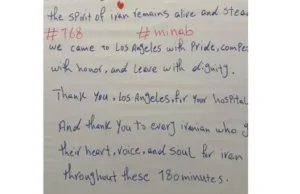 the spirit of iran remains alive and stead
#168 #minab
we came to Los Angeles with Pride, compe
with honor, and leave with dignity.
Thank you, Los Angeles, for your hospital
And thank you to every iranian who g
their heart, voice, and soul for iran
throughout these 180 minutes.